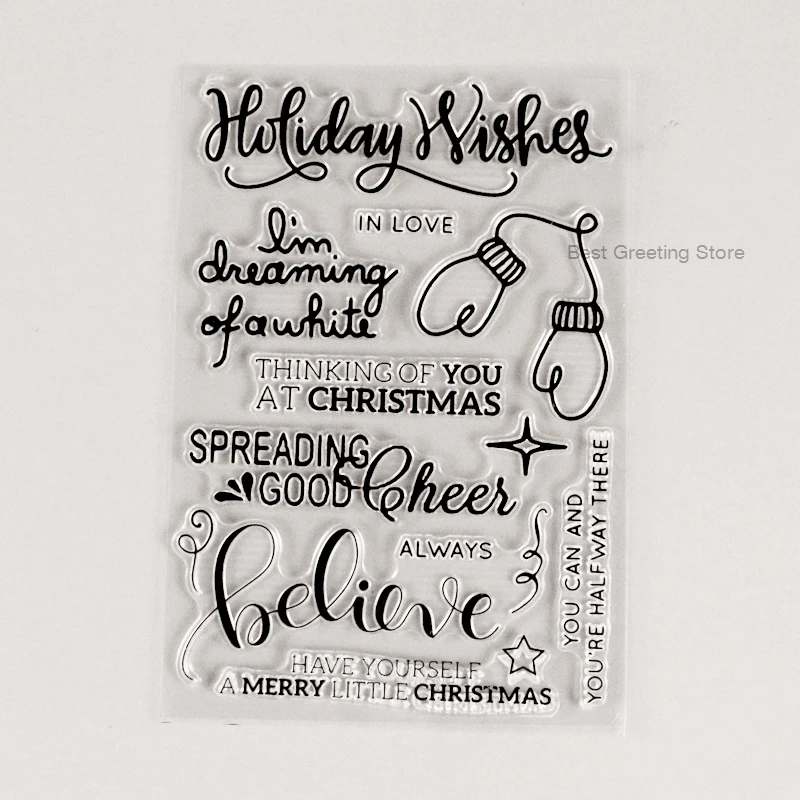 Holiday Wishes
IN LOVE
I'm
dreaming
of a white
Best Greeting Store
THINKING OF YOU
AT CHRISTMAS
SPREADING
GOOD Cheer
ALWAYS
believe
YOU CAN AND
YOU'RE HALFWAY THERE
HAVE YOURSELF
A MERRY LITTLE CHRISTMAS